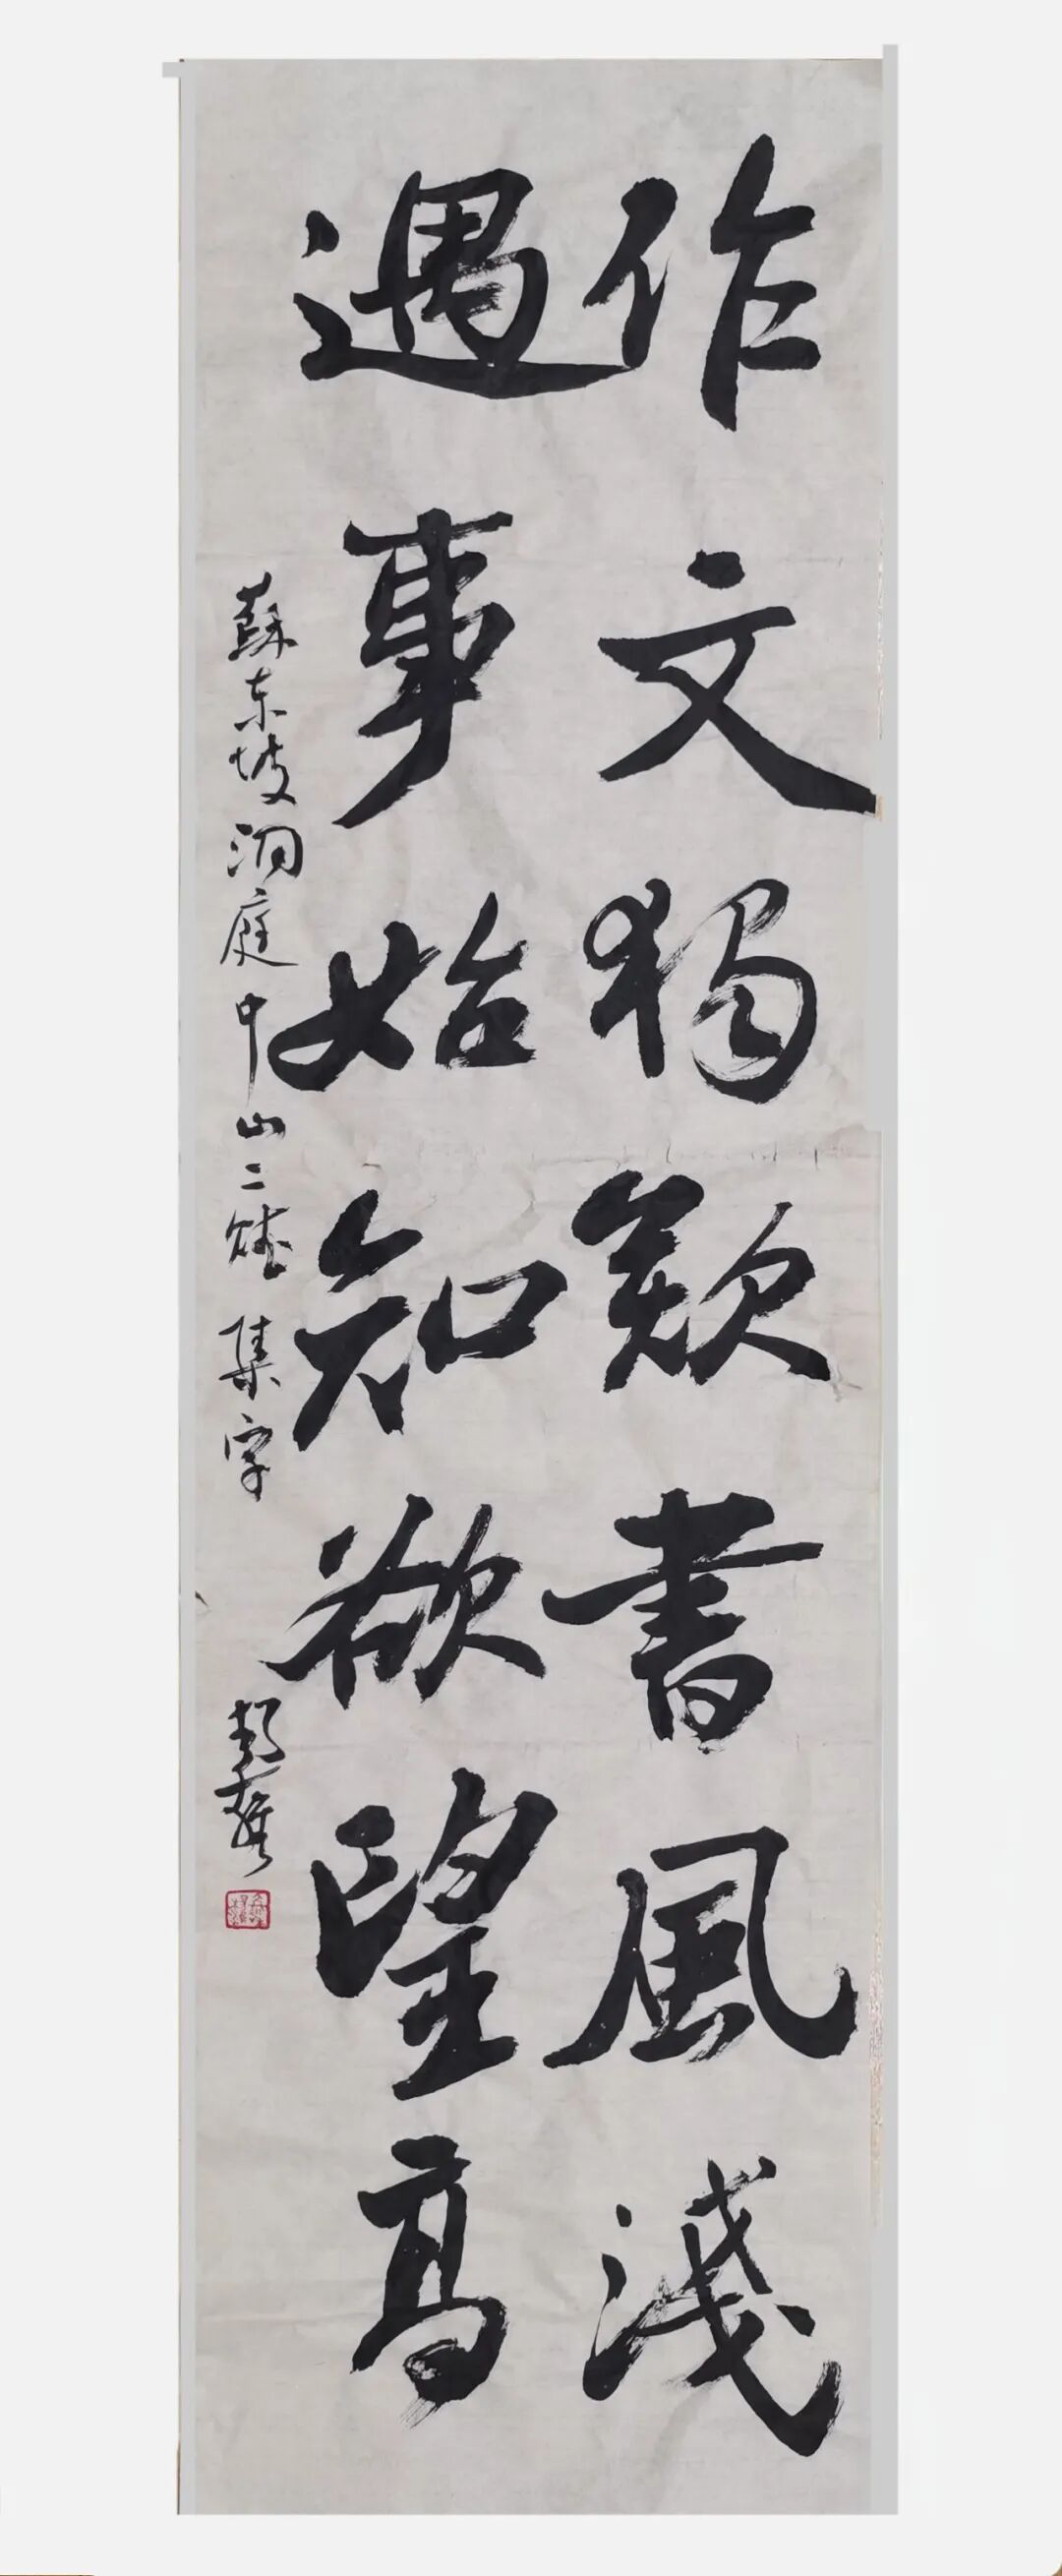 作文獨歎書風淺
遇事始知欲望高
蘇东坡洞庭中山二賦集字